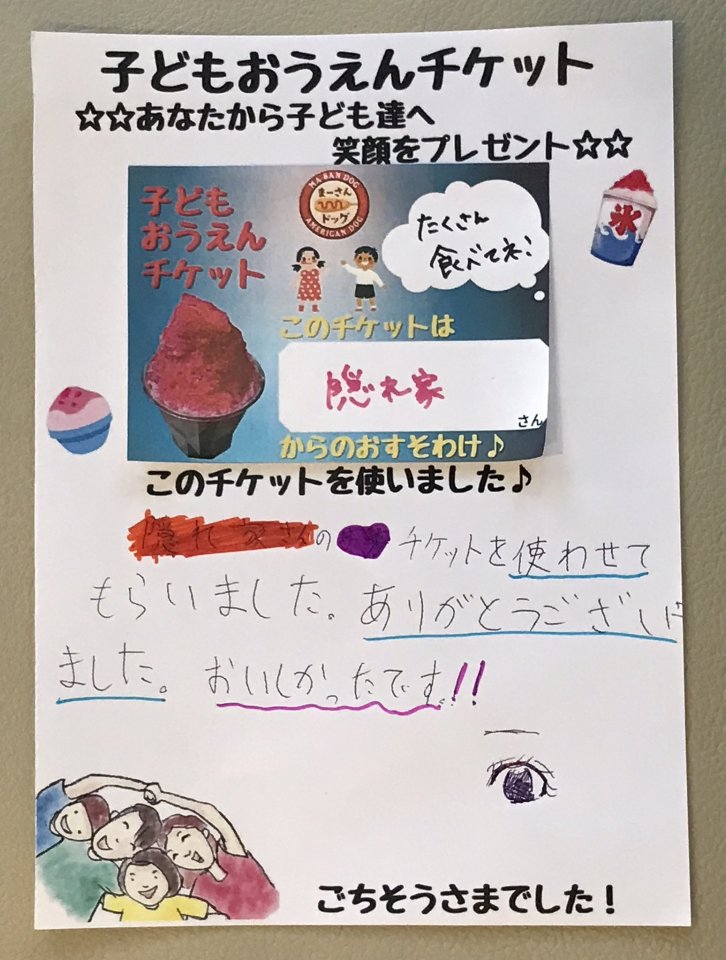 子どもおうえんチケット
☆☆あなたから子ども達へ
笑顔をプレゼント☆☆
子ども
おうえん
チケット
MA SAN DOG
まーさん
ドッグ
AMERICAN DOG
たくさん
食べてネ!
氷
このチケットは
隠れ家
さん
からのおすそわけ♪
このチケットを使いました♪
隠れ家さんの チケットを使わせて
もらいました。ありがとうござい
ました。おいしかったです。!!
ごちそうさまでした!